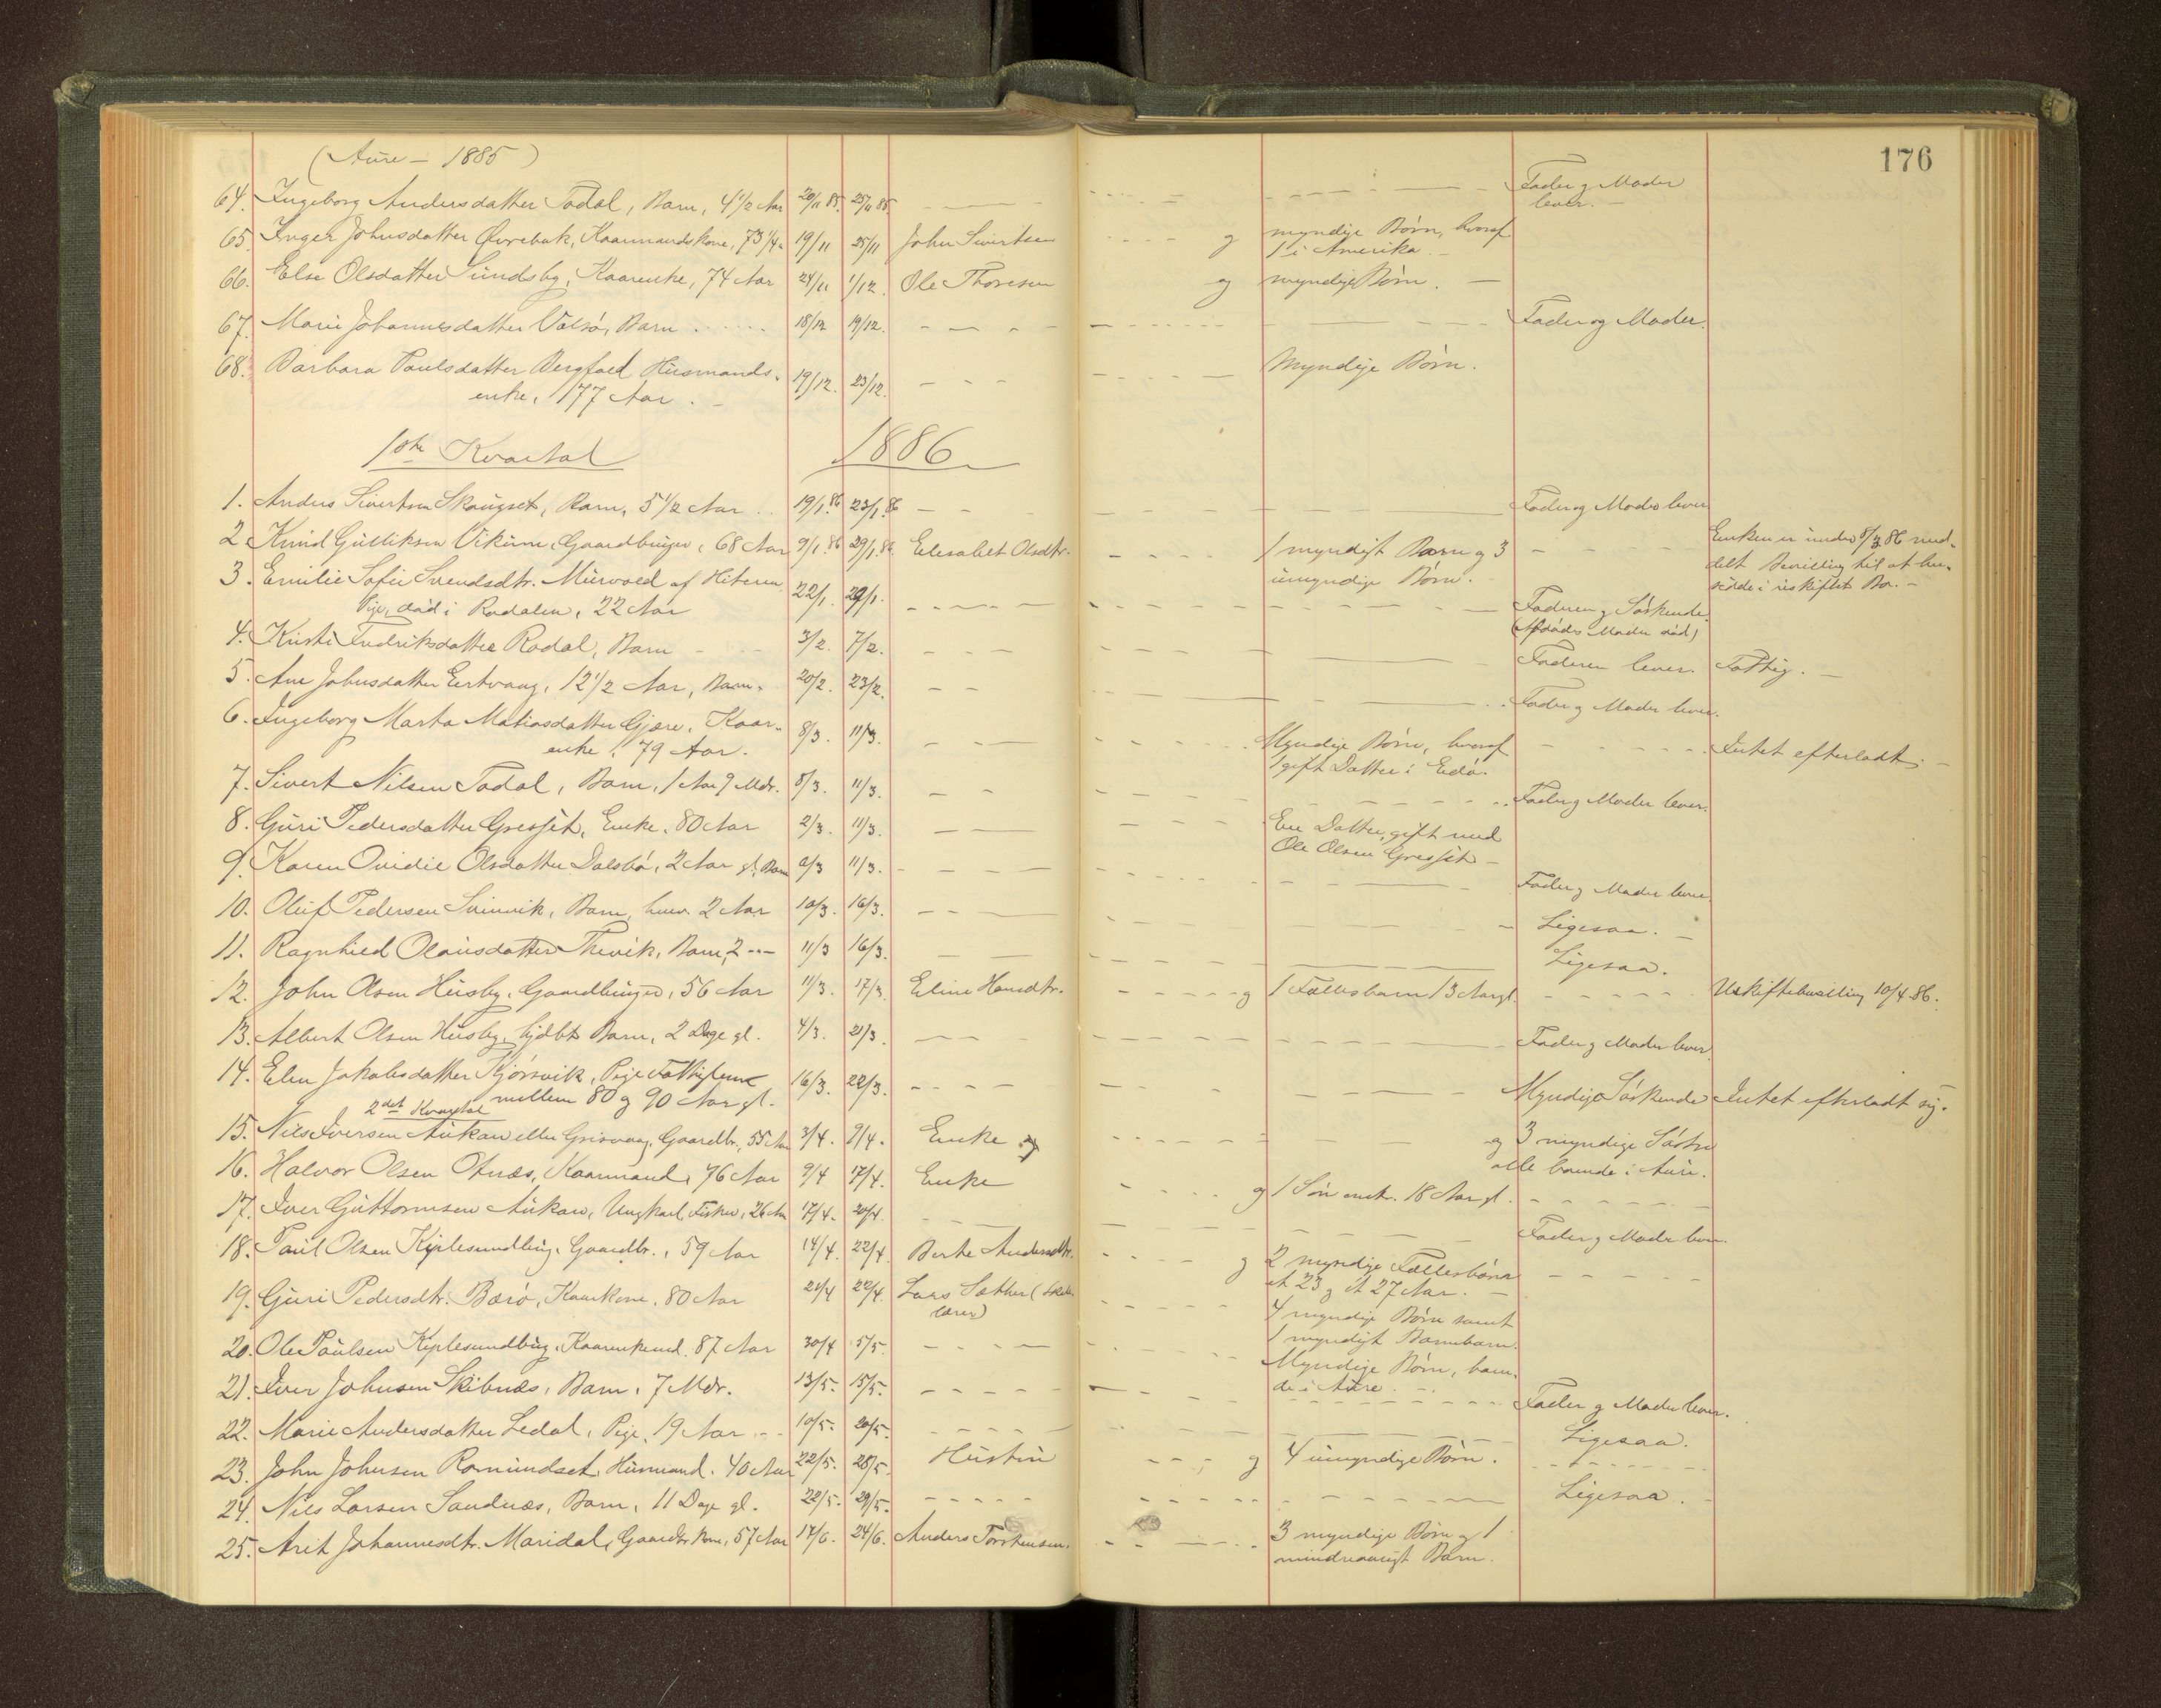 176
(Aure – 1885)
64. Ingeborg Andersdatter Todal, Barn, 4 1/2 Aar 20/11 85. 25/11 85 Fader og Moder
lever. –
65. Inger Johnsdatter Øvrebak, Kaarmandskone, 73 1/4 19/11 25/11 John Sivertsen og myndige Børn, hvoraf
1 i Amerika. –
66. Else Olsdatter Sundsby, Kaarenke, 74 Aar 24/11 1/12. Ole Thoresen og myndige Børn. –
67. Marie Johannesdatter Valsø, Barn 18/12 19/12. Fader og Moder.
68. Barbara Paulsdatter Bergfald Husmands- 19/12. 23/12. Myndige Børn.
enke, 77 Aar. –
1ste Kvartal 1886
1. Anders Sivertsen Skaugset, Barn, 5 1/2 Aar 19/1.86 23/1.86 Fader og Moder lever
2. Knud Gulliksen Vikum, Gaardbruger, 68 Aar 9/1.86 29/1.86 Elisabet Olsdtr. 1 myndigt Barn og 3 Enken er under 8/3 86 med-
umyndige Børn. – delt Bevilling til at hen-
sidde i uskiftet Bo. –
3. Emilie Sofie Svendsdtr. Murvold af Hiteren, 22/1. 29/1. Faderen og Søskende.
Pige, død i Rodalen, 22 Aar (Afdødes Moder død)
4. Kirsti Fredriksdatter Rodal, Barn 3/2. 7/2. Faderen lever. Fattig. –
5. Ane Johnsdatter Eertvaag, 12 1/2 Aar, Barn. 20/2. 23/2. Fader og Moder lever.
6. Ingeborg Marta Matiasdatter Gjøre, Kaar- 8/3. 11/3. Myndige Børn, hvoraf Intet efterladt. –
enke, 79 Aar. 1 gift Datter i Edø.
7. Sivert Nilsen Todal, Barn, 1 Aar 9 Mdr. 8/3. 11/3. Fader og Moder lever.
8. Guri Pedersdatter Gresset, Enke, 80 Aar 2/3. 11/3. En Datter, gift med
Ole Olsen Gresset –
9. Karen Ovidie Olsdatter Dalsbø, 2 Aar gl. Barn 9/3 11/3. Fader og Moder lever
10. Oluf Pedersen Svinvik, Barn, 2 Aar 10/3. 16/3. Ligesaa. –
11. Ragnhild Olausdatter Thevik, Barn, 2 11/3 16/3. Ligesaa.
12. John Olsen Husby, Gaardbruger, 56 Aar 11/3. 17/3. Eline Hansdtr. og 1 Fællesbarn 13 Aar gl. Uskiftebevilling 10/4 86.
13. Albert Olsen Husby, hjdbt Barn, 2 Dage gl. 4/3. 21/3. Fader og Moder lever.
14. Elen Jakobsdatter Kjørsvik, Pige Fattiglem 16/3. 22/3. Myndige Søskende Intet efterladt sig.
mellem 80 og 90 Aar gl.
2det Kvartal
15. Nils Iversen Aukan eller Grisvaag, Gaardbr., 55 Aar 3/4. 9/4. Enke og og 3 myndige Søstre
alle boende i Aure.
16. Halvor Olsen Otnæs, Kaarmand, 76 Aar 9/4 17/4. Enke og 1 Søn omtr. 18 Aar gl.
17. Iver Guttormsen Aukan, Ungkarl, Fisker, 26 Aar 17/4. 20/4. Fader og Moder lever.
18. Paul Olsen Kiplesundbug, Gaardbr., 59 Aar 14/4. 22/4. Berte Andersdtr. og 2 myndige Fællesbørn
et 23 og et 27 Aar. –
19. Guri Pedersdtr. Bærø, Kaarkone, 80 Aar 21/4 22/4. Lars Sæther (Skole-
lærer) 4 myndige Børn samt
1 myndigt Barnebarn.
20. Ole Paulsen Kiplesundbug, Kaarenkemd. 87 Aar 30/4 5/5. Myndige Børn, boen-
de i Aure.
21. Iver Johnsen Skibnæs, Barn, 7 Mdr. 13/5. 15/5. Fader og Moder lever.
22. Marie Andersdatter Ledal, Pige, 19 Aar 10/5. 20/5. Ligesaa.
23. John Johnsen Romundset, Husmand. 40 Aar 22/5. 28/5. Hustru og 4 umyndige Børn.
24. Nils Larsen Sandnæs, Barn, 11 Dage gl. 22/5. 29/5. Ligesaa.
25. Arit Johannesdtr. Maridal, Gaardbr.kone, 57 Aar 17/6. 24/6. Anders Torstensen. 3 myndige Børn og 1
mindreaarigt Barn.